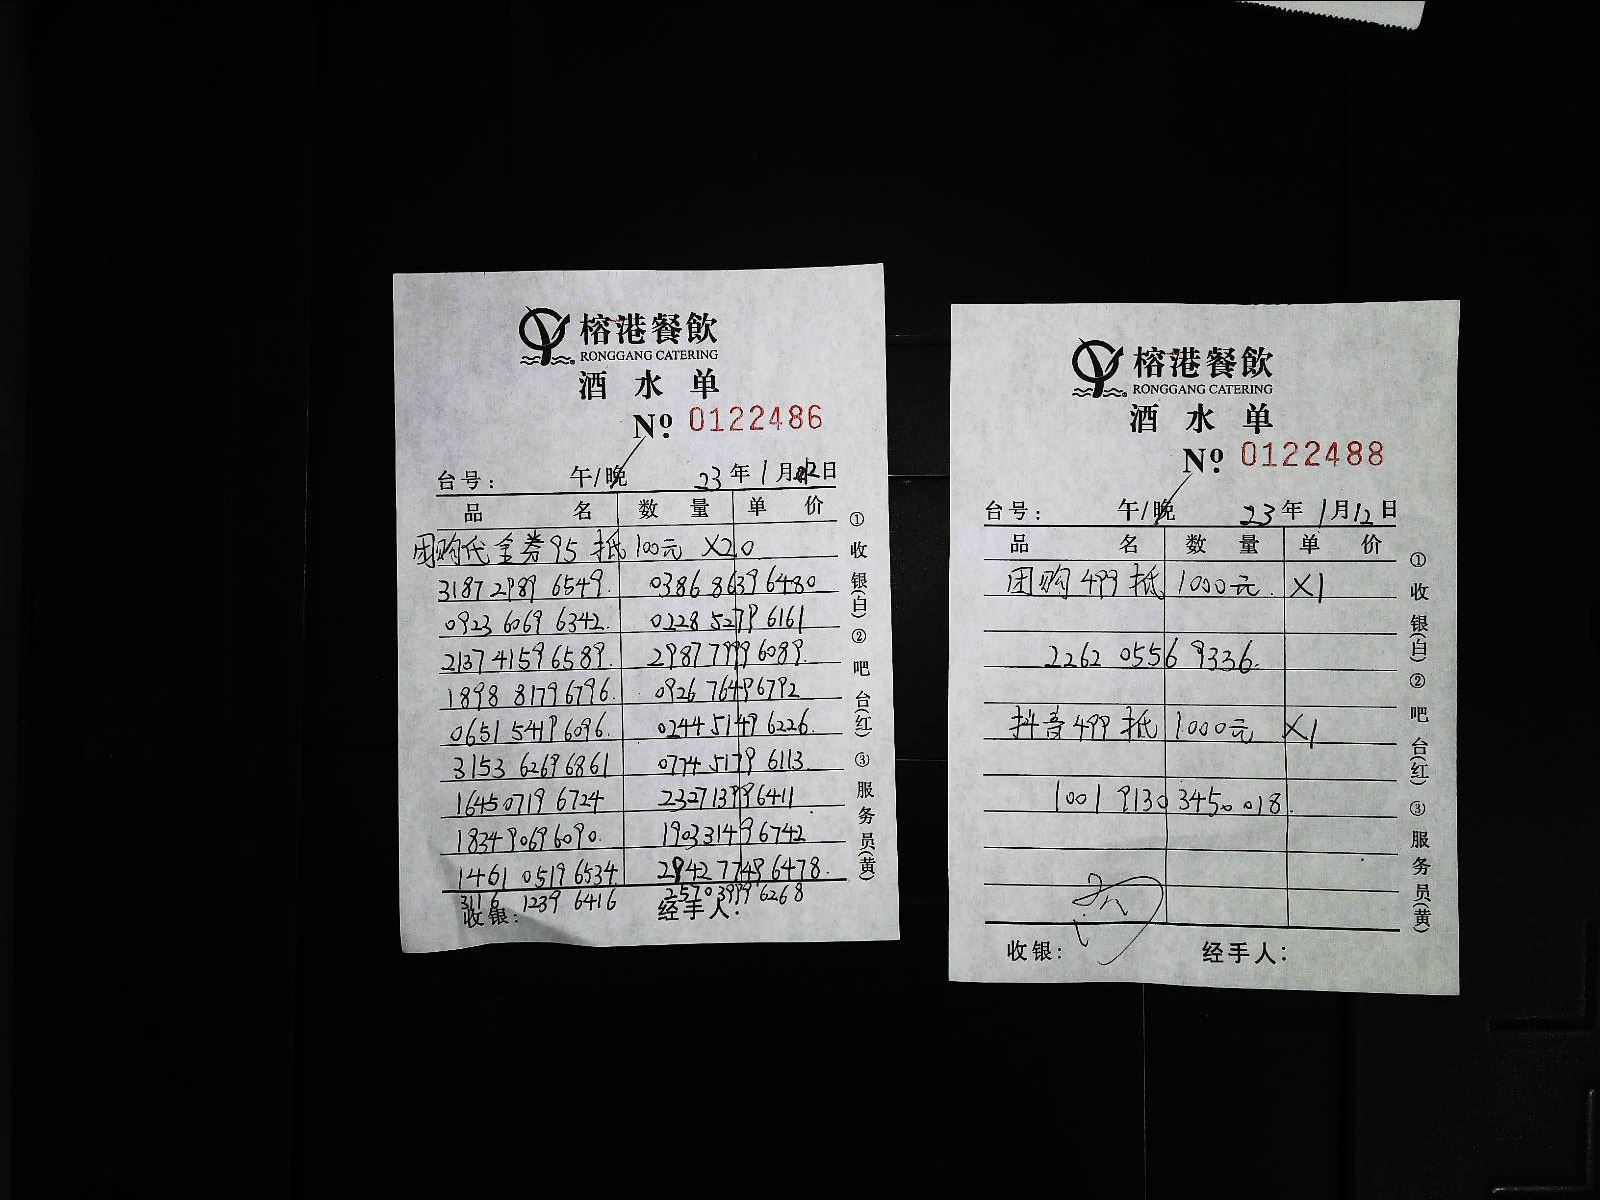 榕港餐飲
RONGGANG CATERING
酒水单
Nº 0122486
台号： 午/晚 23年1月12日
品名 数量 单价
团购代金券95抵100元 X20
3187 2989 6549. 0386 8639 6480
0923 6069 6342. 0228 5279 6161
2137 4159 6589. 2987 7999 6089.
1898 8179 6796. 0926 7649 6792
0651 5419 6096. 0244 5149 6226.
3153 6269 6861 0774 5179 6113.
1645 0719 6724 2327 1399 6411
1834 9069 6090. 1903 3149 6742
1461 0519 6534. 2942 7749 6478.
3116 1239 6416 2570 3999 6268
收银： 经手人：
①收银(白)②吧台(红)③服务员(黄)
榕港餐飲
RONGGANG CATERING
酒水单
Nº 0122488
台号： 午/晚 23年1月12日
品名 数量 单价
团购499抵1000元. X1
2262 0556 9336.
抖音499抵1000元 X1
1001 9130 3450 018.
收银： 经手人：
①收银(白)②吧台(红)③服务员(黄)